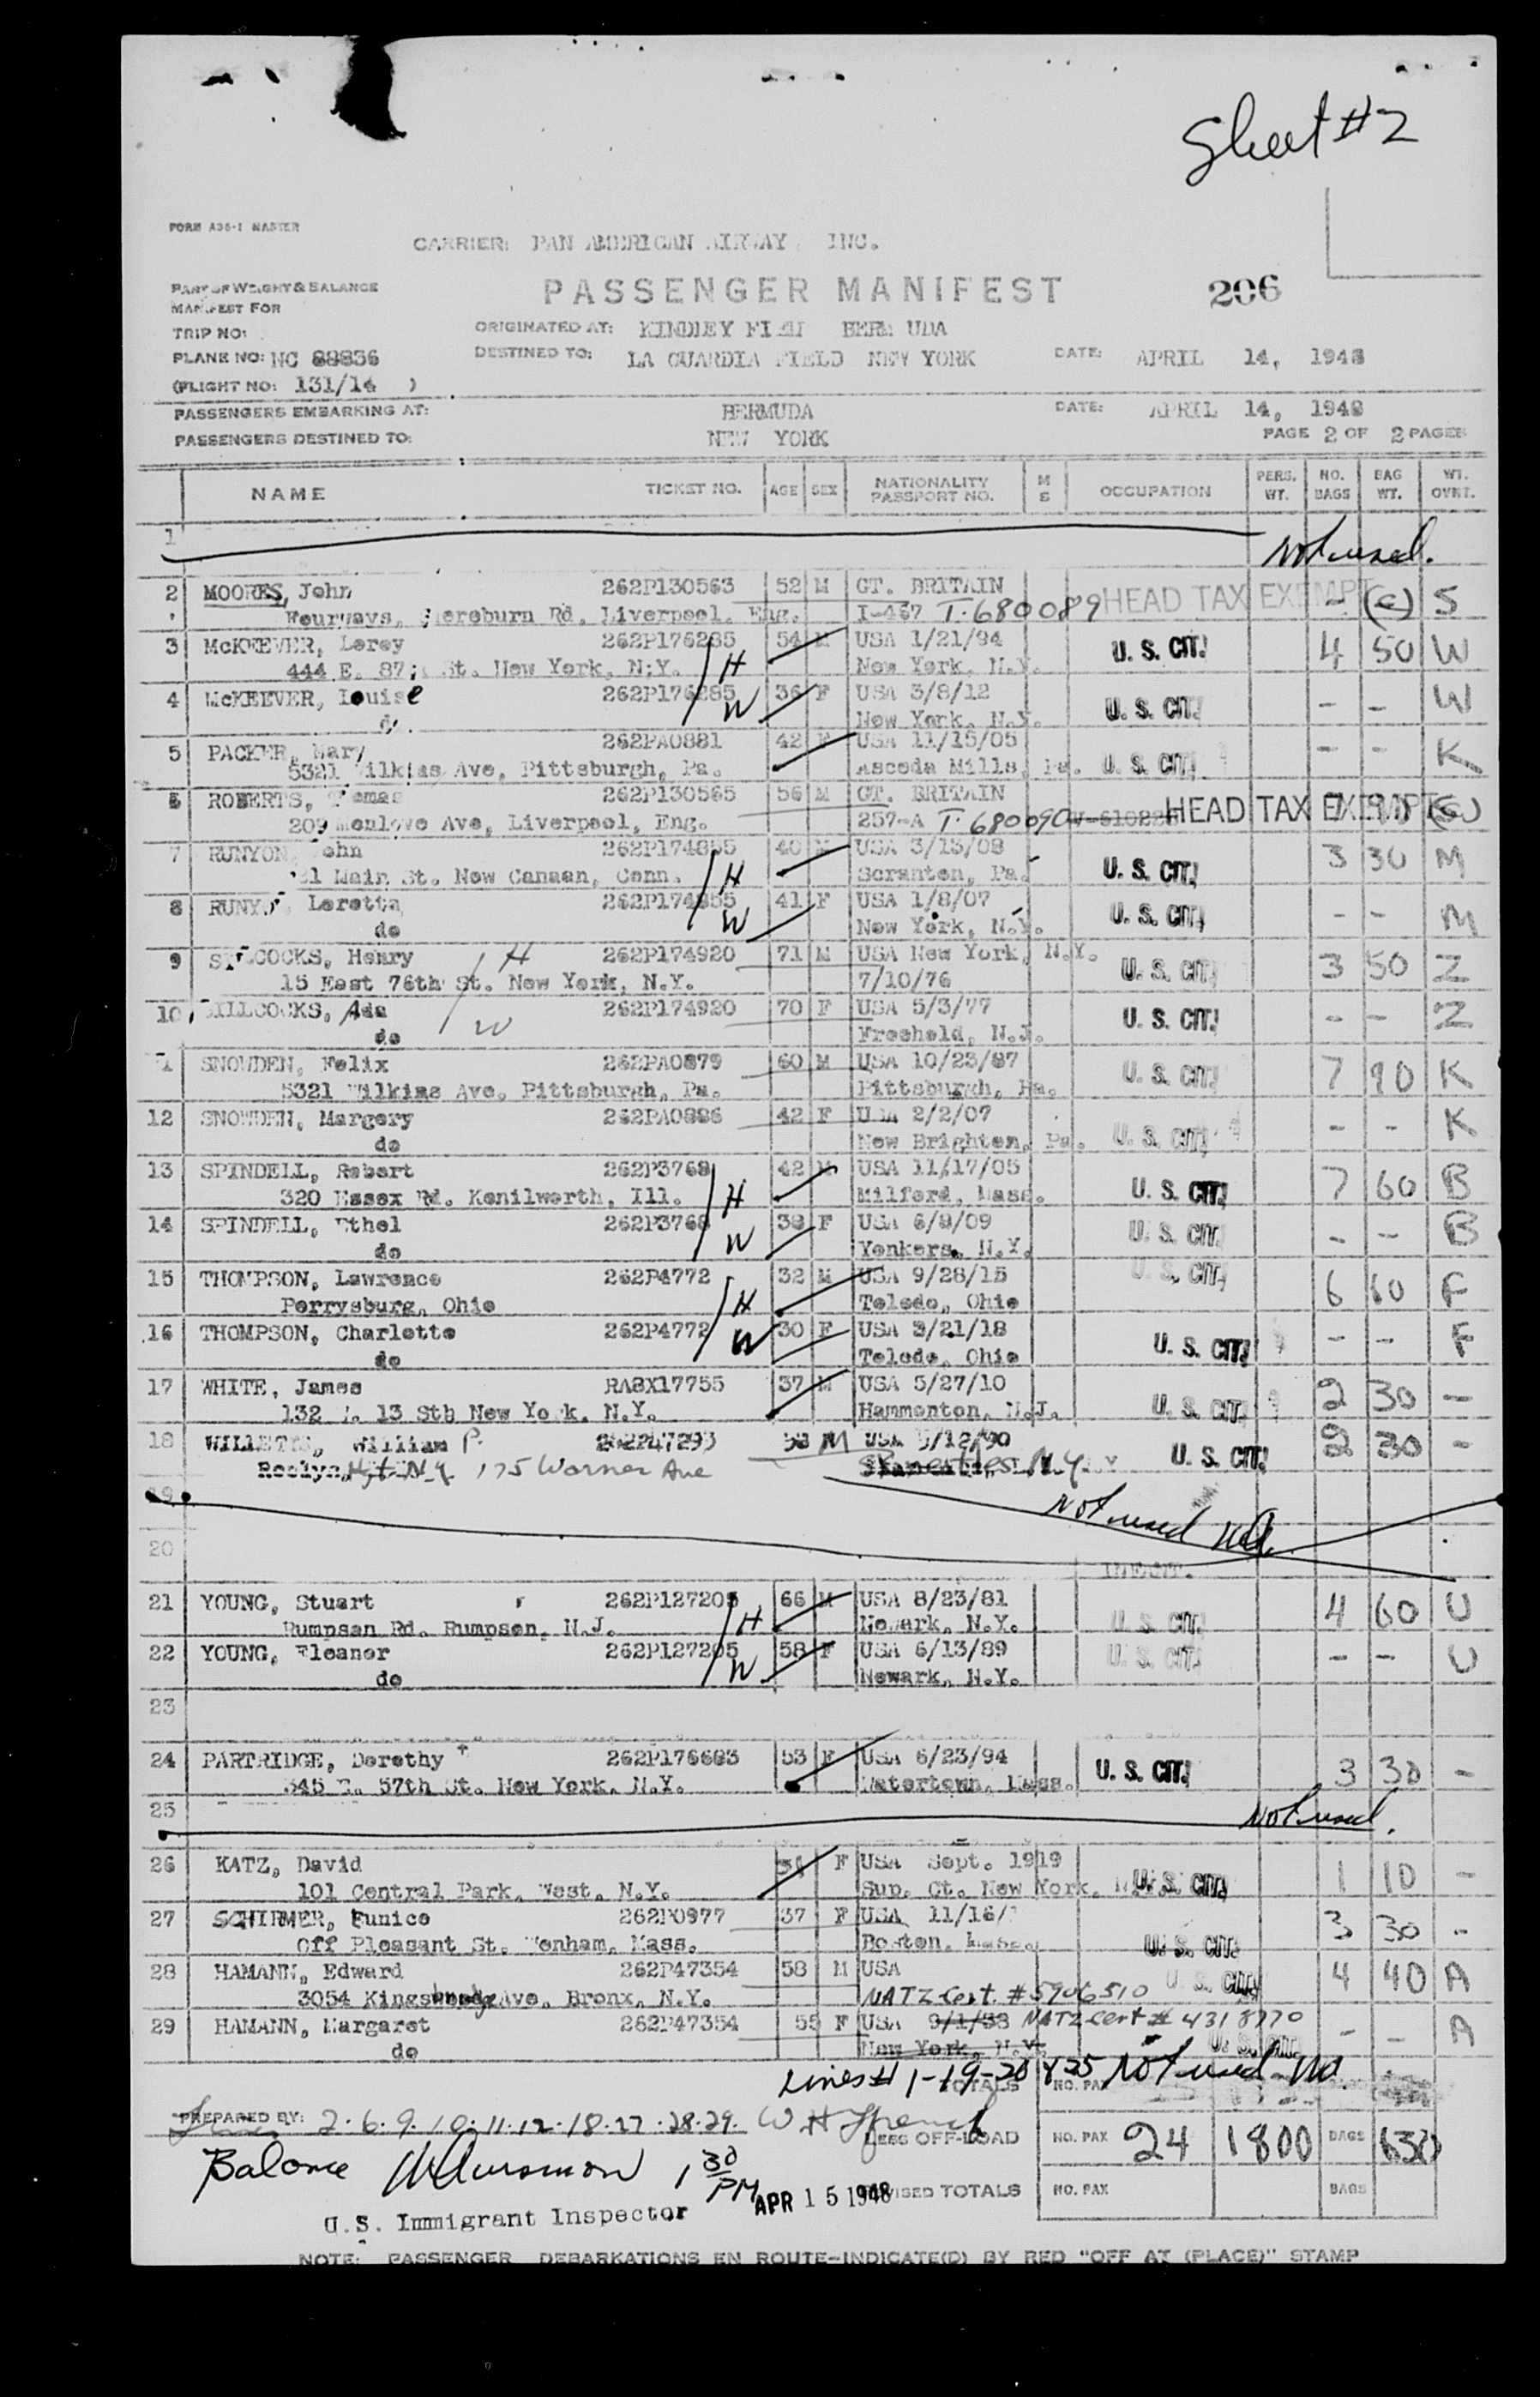 Sheet #2
FORM A36-1 MASTER
CARRIER: PAN AMERICAN AIRWAY INC.
PART OF WEIGHT & BALANCE
MANIFEST FOR
PASSENGER MANIFEST 206
TRIP NO:
ORIGINATED AT: KINDLEY FIELD BERMUDA
PLANE NO: NC 88836
DESTINED TO: LA GUARDIA FIELD NEW YORK DATE: APRIL 14, 1948
(FLIGHT NO: 131/14 )
PASSENGERS EMBARKING AT: BERMUDA DATE: APRIL 14, 1948
PASSENGERS DESTINED TO: NEW YORK PAGE 2 OF 2 PAGES
NAME TICKET NO. AGE SEX NATIONALITY PASSPORT NO. M S OCCUPATION PERS. WT. NO. BAGS BAG WT. WT. OVRT.
1 Not used.
2 MOORES, John 262P130563 52 M GT. BRITAIN HEAD TAX EXEMPT - (c) S
Rd. Liverpool. Eng. I-467 T. 680089
3 McKEEVER, Leroy 262P176285 54 M USA 1/21/94 U. S. CIT. 4 50 W
444 E. 87 St. New York, N.Y. H New York, N.Y.
4 McKEEVER, Louise 262P176285 36 F USA 3/8/12 U. S. CIT. - - W
W New York, N.Y.
5 PACKER, Mary 262PA0881 42 F USA 11/15/05 - - K
5321 Wilkins Ave, Pittsburgh, Pa. Mills, Pa. U. S. CIT.
6 ROBERTS, Thomas 262P130565 56 M GT. BRITAIN HEAD TAX EXEMPT
209 Menlove Ave, Liverpool, Eng. 257-A T. 680090
7 RUNYON, John 262P174855 40 M USA 3/15/08 U. S. CIT. 3 30 M
Main St. New Canaan, Conn. H Scranton, Pa.
8 RUNYON, Loretta 262P174855 41 F USA 1/8/07 U. S. CIT. - - M
do W New York, N.Y.
9 SILLCOCKS, Henry H 262P174920 71 M USA New York, N.Y. U. S. CIT. 3 50 Z
15 East 76th St. New York, N.Y. 7/10/76
10 SILLCOCKS, Ada 262P174920 70 F USA 5/3/77 U. S. CIT. - - Z
do W Freehold, N.J.
11 SNOWDEN, Felix 262PA0879 60 M USA 10/23/87 U. S. CIT. 7 90 K
5321 Wilkins Ave. Pittsburgh, Pa. Pittsburgh, Pa.
12 SNOWDEN, Margery 262PA0886 42 F USA 2/2/07 - - K
do New Brighton, Pa. U. S. CIT.
13 SPINDELL, Robert 262P3768 42 M USA 11/17/05 U. S. CIT. 7 60 B
320 Essex Rd. Kenilworth, Ill. H Milford, Mass.
14 SPINDELL, Ethel 262P3768 38 F USA 6/9/09 U. S. CIT. - - B
do W Yonkers, N.Y.
15 THOMPSON, Lawrence 262P4772 32 M USA 9/28/15 U. S. CIT. 6 60 F
Perrysburg, Ohio H Toledo, Ohio
16 THOMPSON, Charlotte 262P4772 30 F USA 3/21/18 U. S. CIT. - - F
do W Toledo, Ohio
17 WHITE, James RASX17755 37 M USA 5/27/10 U. S. CIT. 2 30 -
132 13 Stb New York, N.Y. Hammonton, N.J.
18 WILLETTS, William P. 262P47293 58 M USA 5/12/90 U. S. CIT. 2 30 -
Roslyn Hts N.Y. 175 Warner Ave N.Y.
19 Not used
20
21 YOUNG, Stuart 262P127205 66 M USA 8/23/81 U. S. CIT. 4 60 U
Rumpsan Rd. Rumpson, N.J. H Newark, N.Y.
22 YOUNG, Eleanor 262P127205 58 F USA 6/13/89 U. S. CIT. - - U
do W Newark, N.Y.
23
24 PARTRIDGE, Dorothy 262P176683 53 F USA 6/23/94 U. S. CIT. 3 30 -
345 E. 57th St. New York, N.Y. Watertown, Mass.
25 Not used.
26 KATZ, David F USA Sept. 1919 1 10 -
101 Central Park, West, N.Y. Sup. Ct. New York, U. S. CIT.
27 SCHIRMER, Eunice 262P0977 37 F USA 11/16/ 3 30 -
Off Pleasant St. Wenham, Mass. Boston, Mass. U. S. CIT.
28 HAMANN, Edward 262P47354 58 M USA U. S. CIT. 4 40 A
3054 Kingsbridge Ave. Bronx, N.Y. NATZ Cert. #5906510
29 HAMANN, Margaret 262P47354 55 F USA 9/1/38 NATZ Cert # 4318770 - - A
do New York, N.Y. U. S. CIT.
Lines # 1-19-20 & 25 Not used
TOTALS NO. PAX
PREPARED BY: 2. 6. 9. 10. 11. 12. 18. 27. 28. 29. W H
LESS OFF-LOAD NO. PAX 24 1800 BAGS 630
Balance 1 30 PM APR 15 1948 REVISED TOTALS NO. PAX BAGS
U.S. Immigrant Inspector
NOTE: PASSENGER DEBARKATIONS EN ROUTE-INDICATE(D) BY RED "OFF AT (PLACE)" STAMP